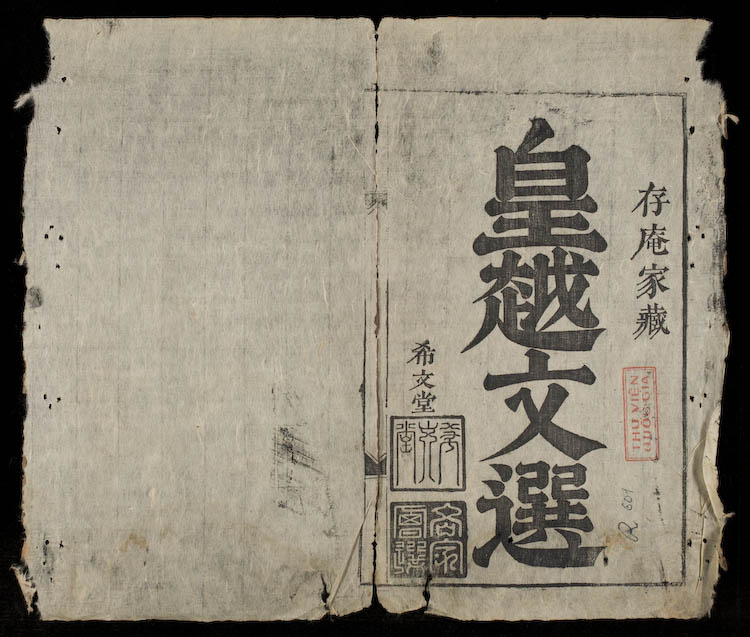 存庵家藏
皇越文選
希文堂
希文堂
THƯ VIỆN
QUỐC GIA
R 601